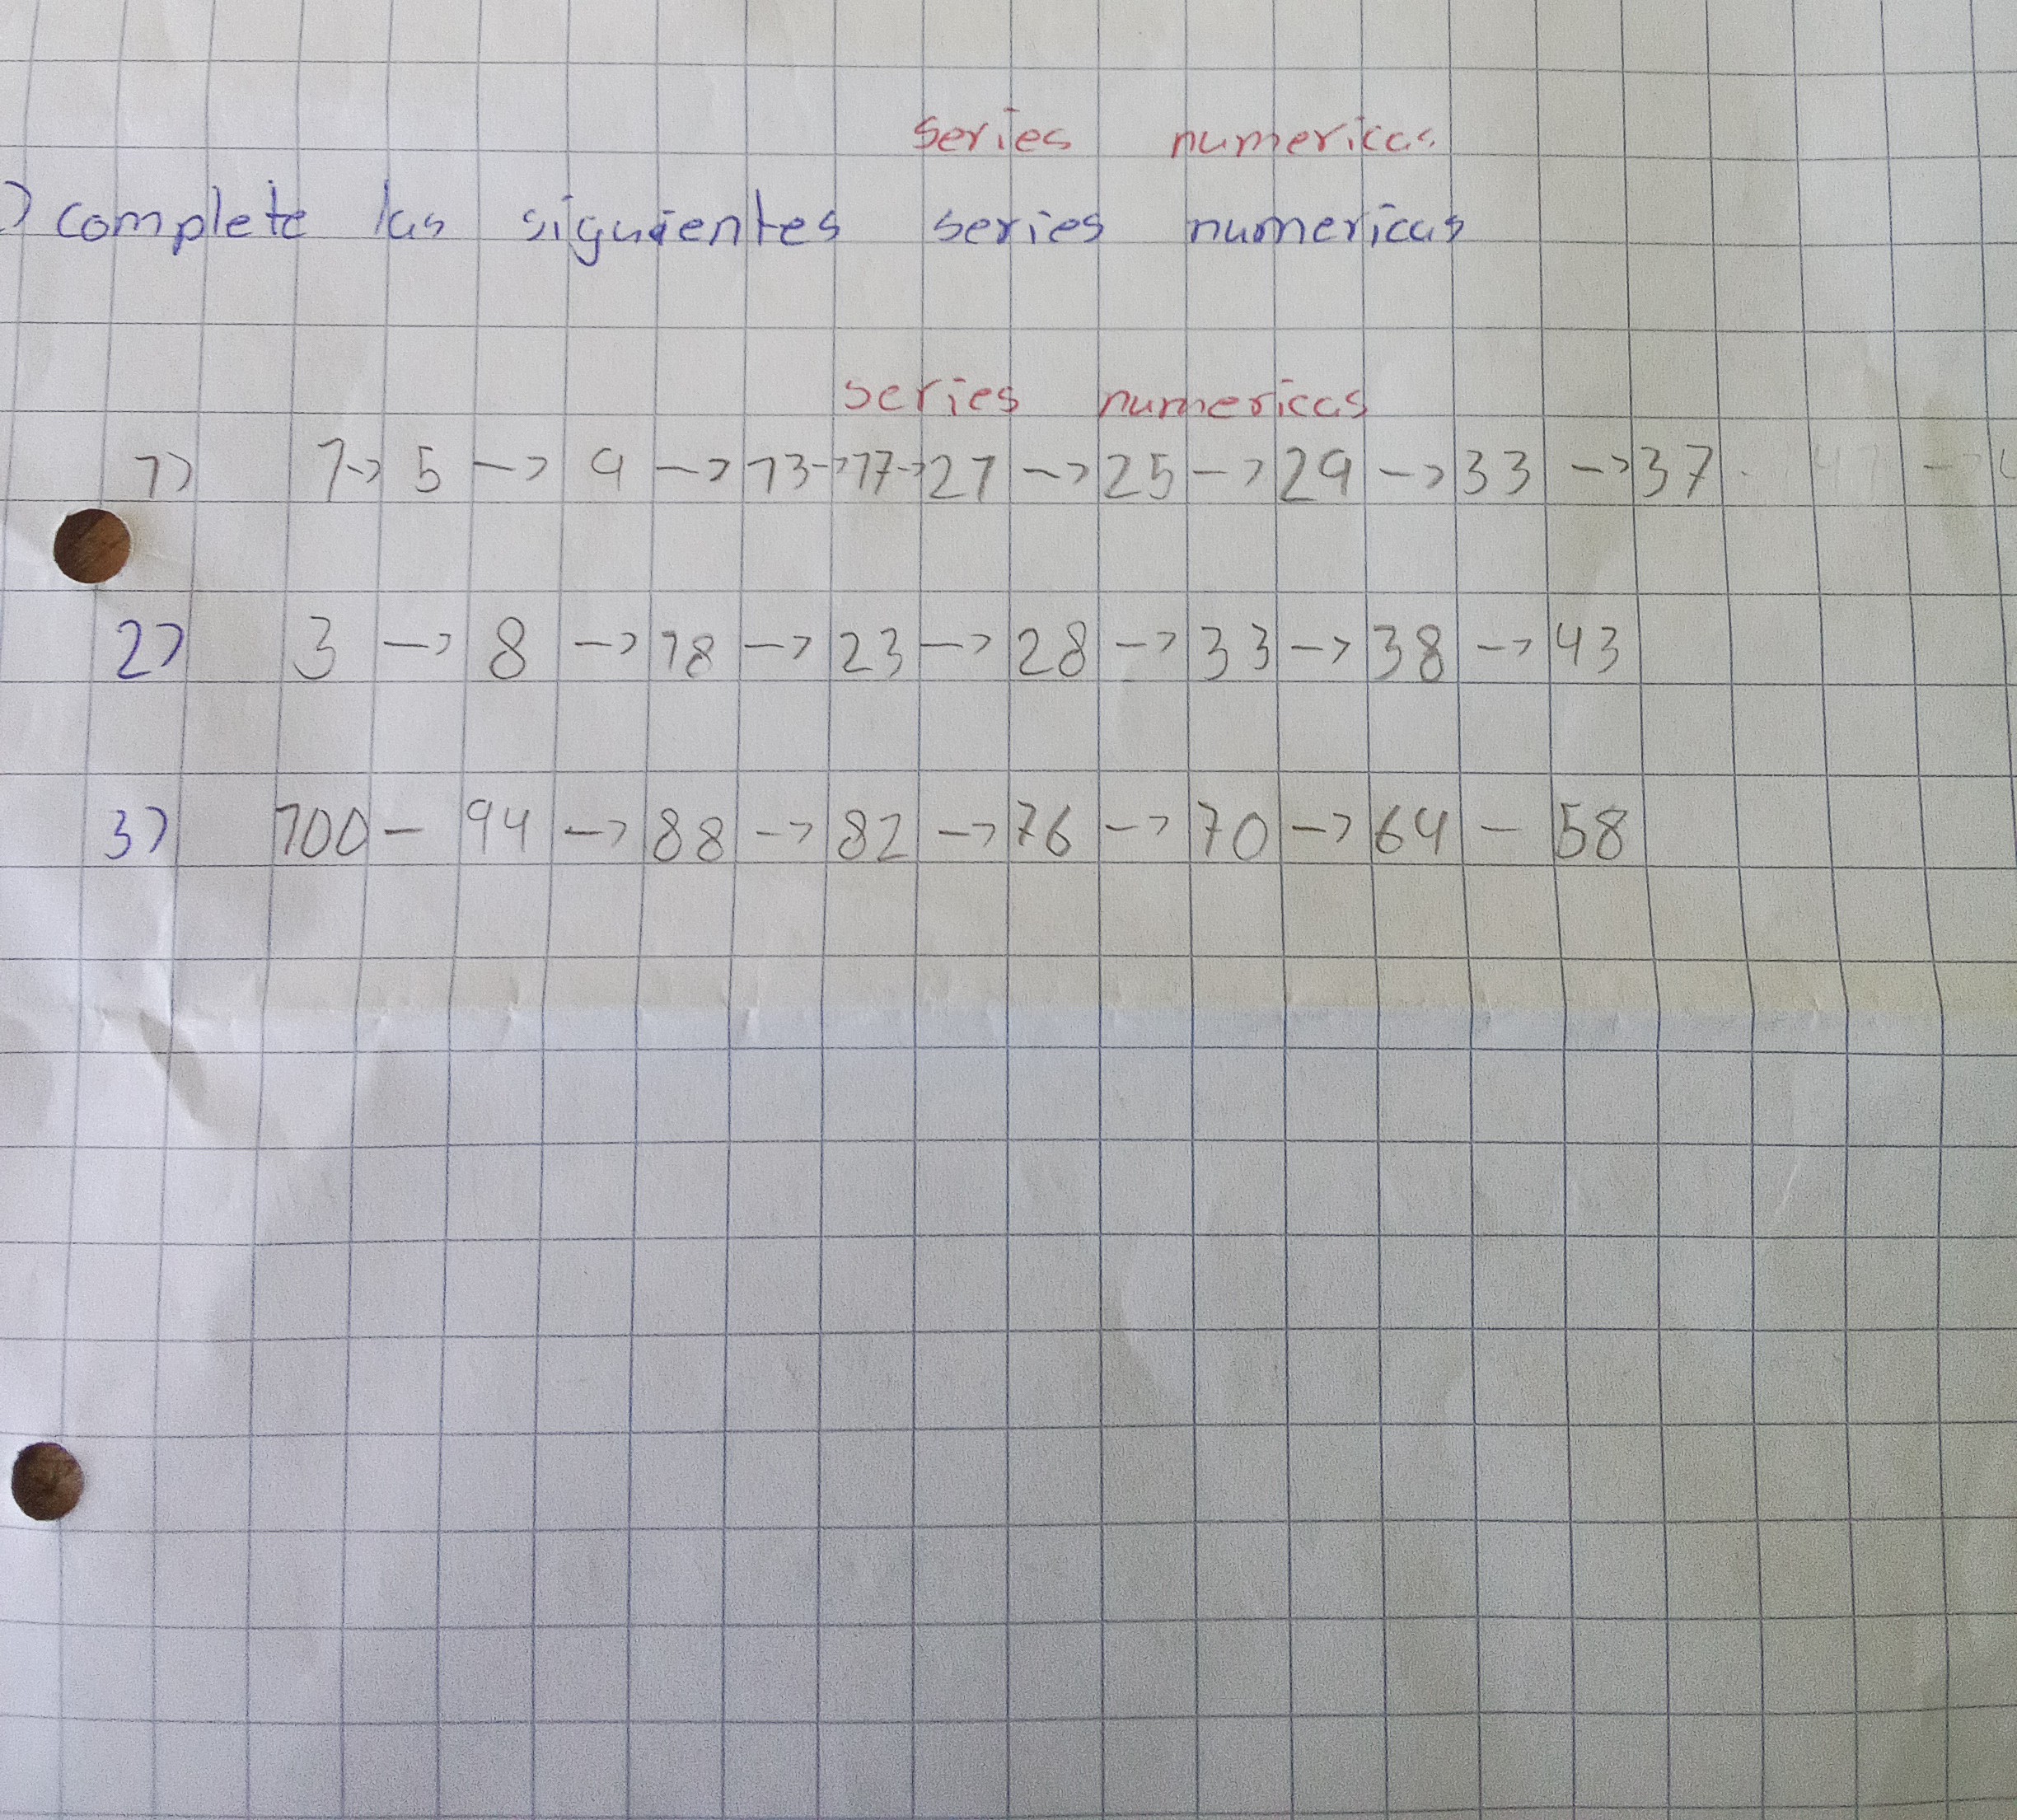 series numericas
) complete las siguientes series numericas
series numericas
1) 1→ 5 → 9 → 13→17→21 → 25 → 29 → 33 → 37
2) 3 → 8 → 18 → 23 → 28 → 33 → 38 → 43
3) 100 - 94 → 88 → 82 → 76 → 70 → 64 - 58